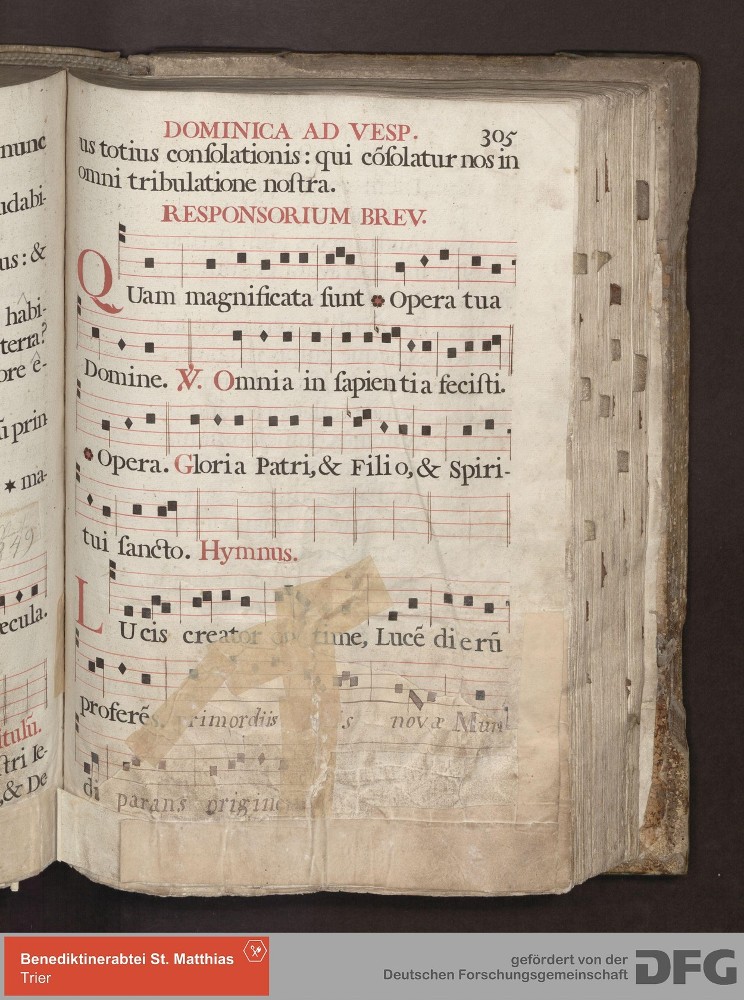 nunc
udabi-
us: &
habi-
terra?
ore ê-
ũ prin
✶ ma-
æcula.
itulũ.
stri Ie-
,& De
DOMINICA AD VESP. 305
us totius conſolationis: qui cõſolatur nos in
omni tribulatione noſtra.
RESPONSORIUM BREV.
QUam magnificata ſunt Opera tua
Domine. ℣. Omnia in ſapientia feciſti.
Opera. Gloria Patri, & Filio, & Spiri-
tui ſancto. Hymnus.
LUcis creator optime, Lucẽ dierũ
proferẽs, primordiis novæ Mun
di parans origine
Benediktinerabtei St. Matthias
Trier
gefördert von der
Deutschen Forschungsgemeinschaft
DFG